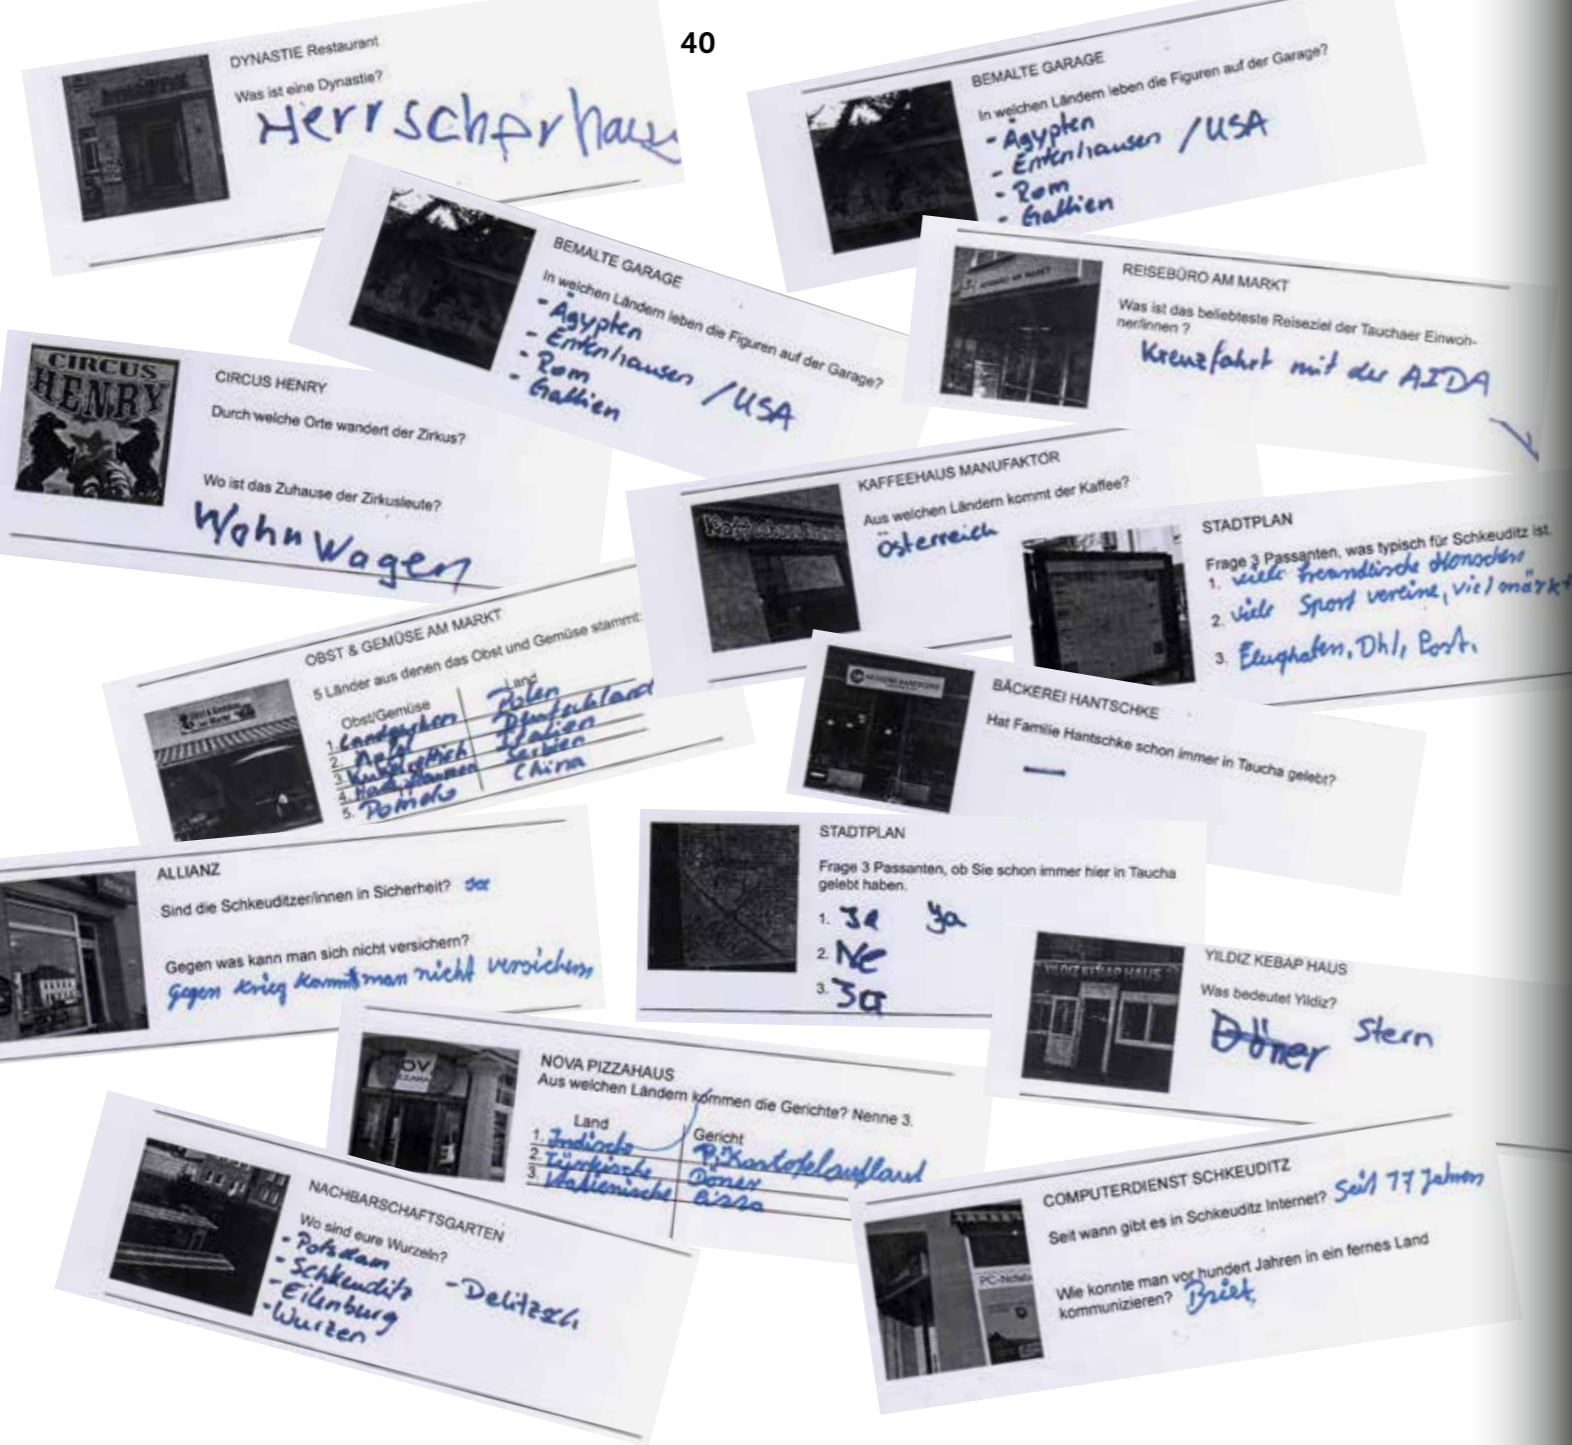 40
DYNASTIE Restaurant
Was ist eine Dynastie?
Herrscherhaus
BEMALTE GARAGE
In welchen Ländern leben die Figuren auf der Garage?
- Ägypten
- Entenhausen / USA
- Rom
- Gallien
BEMALTE GARAGE
In welchen Ländern leben die Figuren auf der Garage?
- Ägypten
- Entenhausen / USA
- Rom
- Gallien
REISEBÜRO AM MARKT
Was ist das beliebteste Reiseziel der Tauchaer Einwoh-
ner/innen ?
Kreuzfahrt mit der AIDA
CIRCUS
HENRY
CIRCUS HENRY
Durch welche Orte wandert der Zirkus?
Wo ist das Zuhause der Zirkusleute?
Wohn Wagen
KAFFEEHAUS MANUFAKTÖR
Aus welchen Ländern kommt der Kaffee?
Österreich
STADTPLAN
Frage 3 Passanten, was typisch für Schkeuditz ist.
1. viele freundliche Menschen
2. viele Sport vereine, viel märkt
3. Flughafen, Dhl, Post.
OBST & GEMÜSE AM MARKT
5 Länder aus denen das Obst und Gemüse stammt:
Obst/Gemüse Land
1. Landgurken Polen
2. Apfel Deutschland
3. Italien
4. Serbien
5. Pomelo China
BÄCKEREI HANTSCHKE
Hat Familie Hantschke schon immer in Taucha gelebt?
—
ALLIANZ
Sind die Schkeuditzer/innen in Sicherheit?
Gegen was kann man sich nicht versichern?
gegen Krieg kann man nicht versichern
STADTPLAN
Frage 3 Passanten, ob Sie schon immer hier in Taucha
gelebt haben.
1. Ja Ja
2. Ne
3. Ja
YILDIZ KEBAP HAUS
YILDIZ KEBAP HAUS
Was bedeutet Yildiz?
Döner Stern
NOVA PIZZAHAUS
Aus welchen Ländern kommen die Gerichte? Nenne 3.
Land Gericht
1. Indische
2. Türkische Döner
3. Italienische Pizza
NACHBARSCHAFTSGARTEN
Wo sind eure Wurzeln?
- Potsdam
- Schkeuditz - Delitzsch
- Eilenburg
- Wurzen
COMPUTERDIENST SCHKEUDITZ
Seit wann gibt es in Schkeuditz Internet? Seit 17 Jahren
Wie konnte man vor hundert Jahren in ein fernes Land
kommunizieren? Brief.